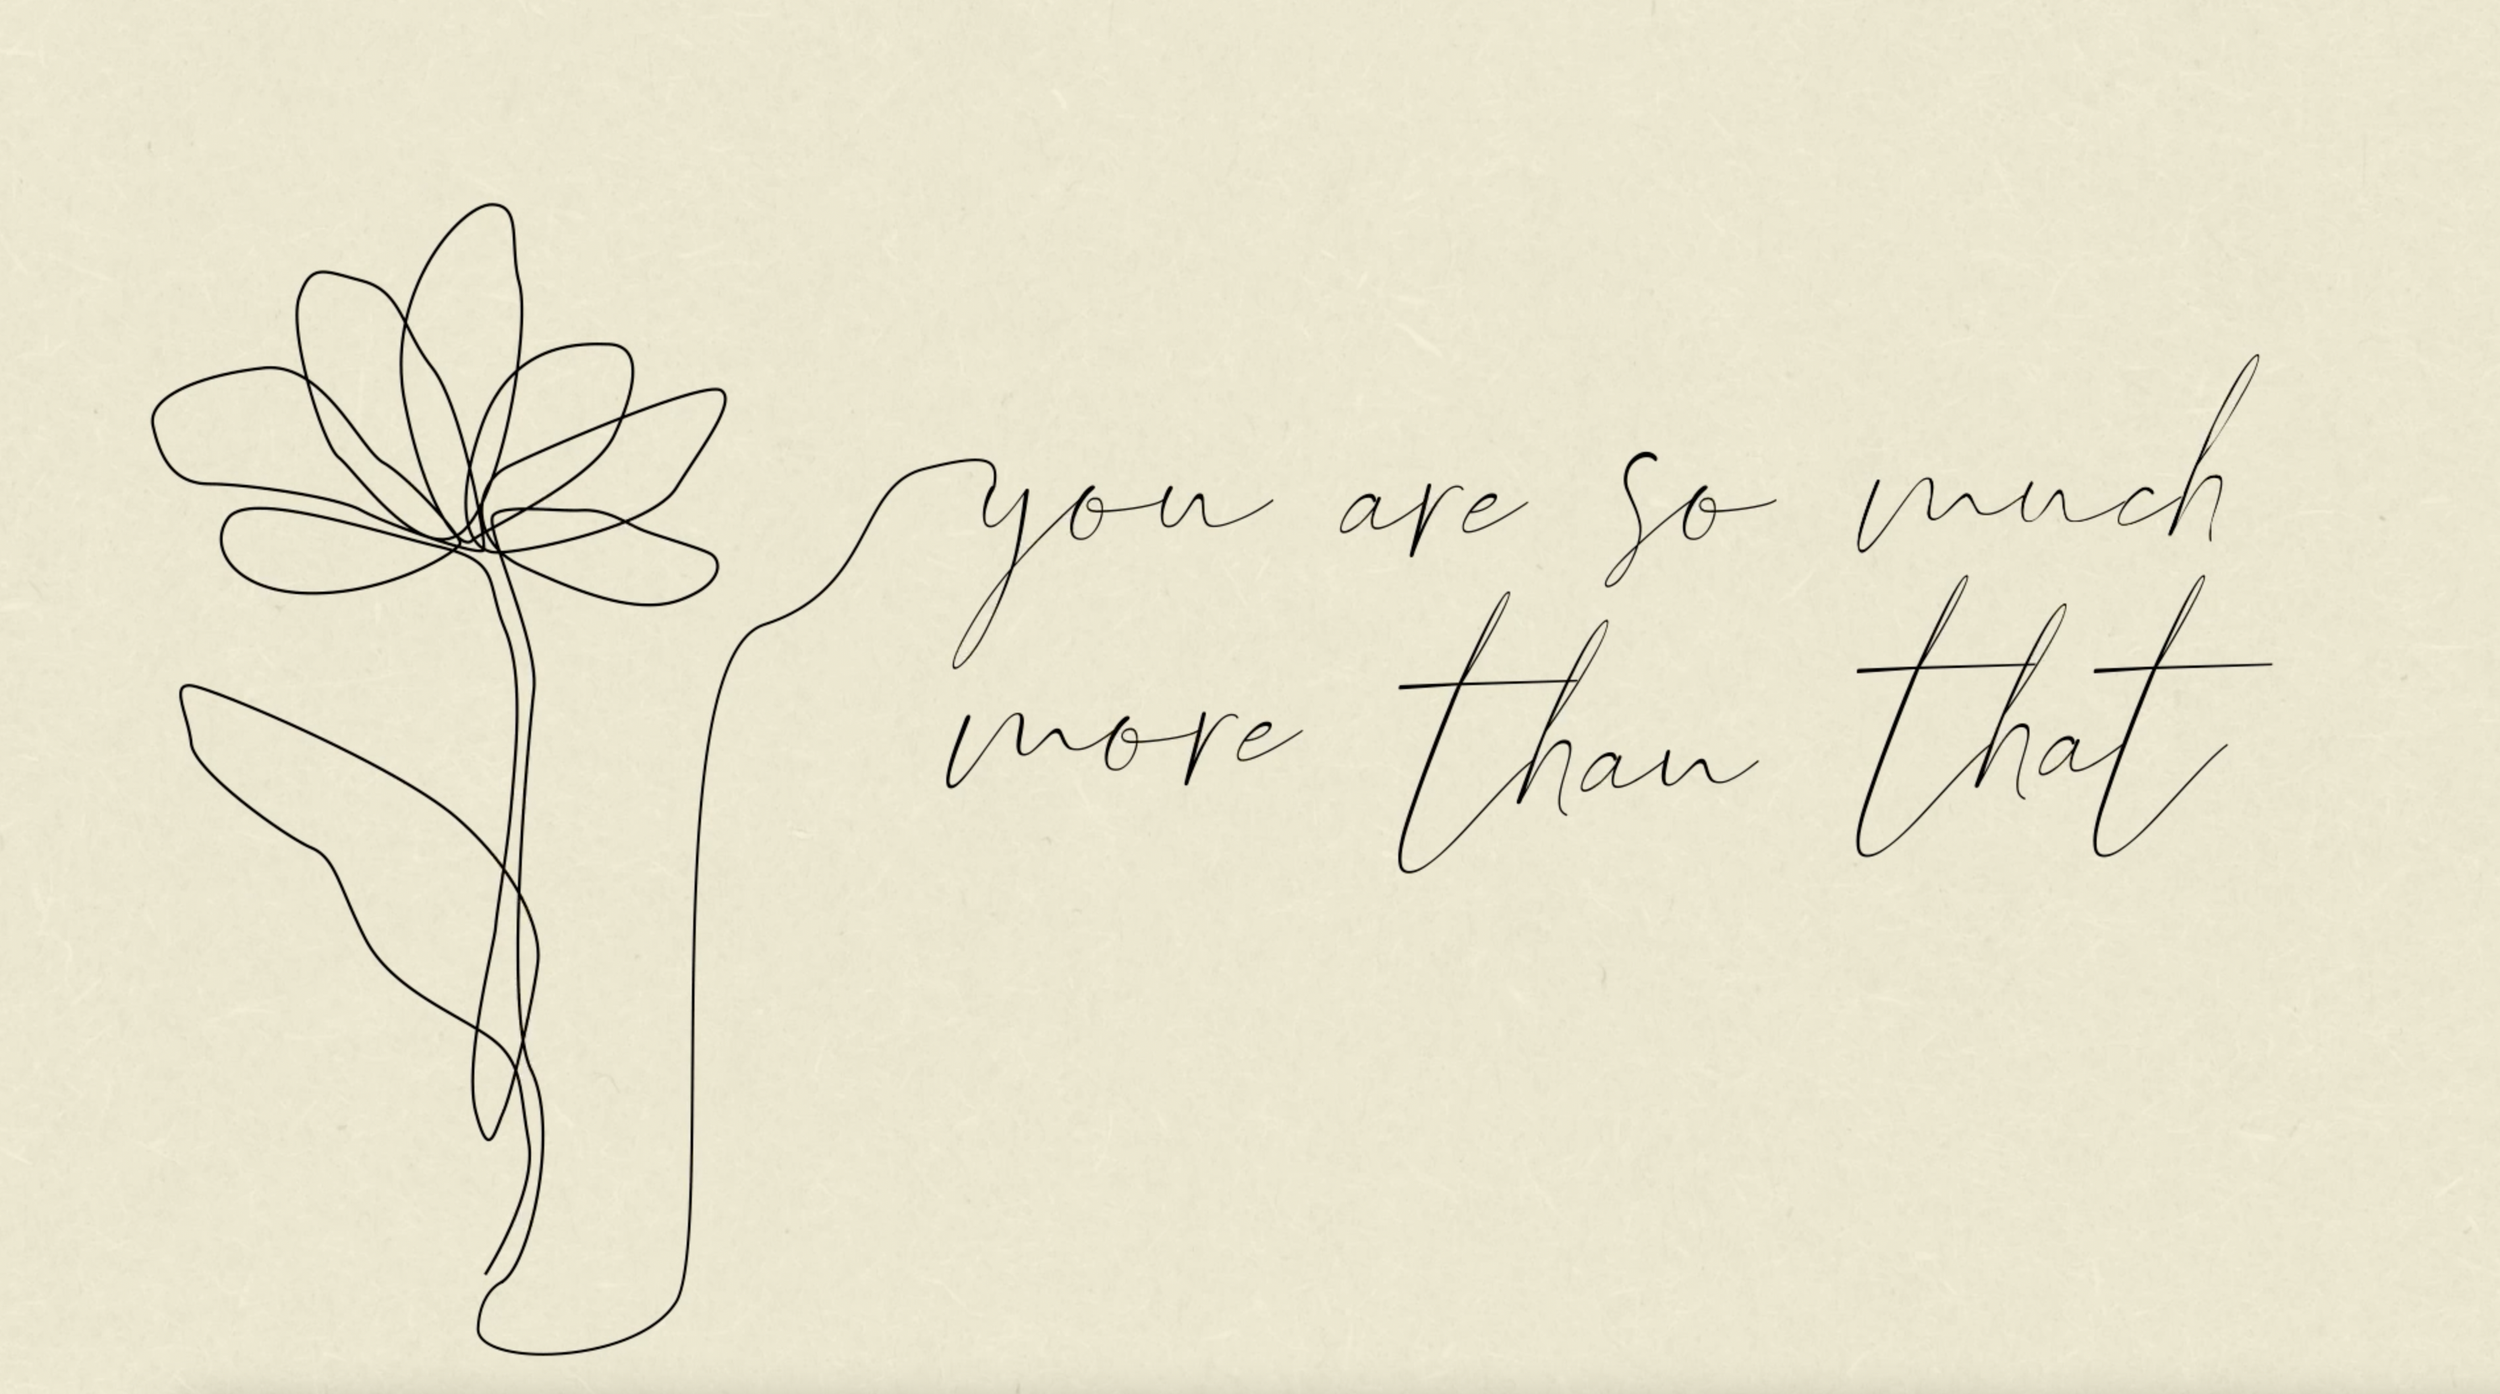 you are so much
more than that